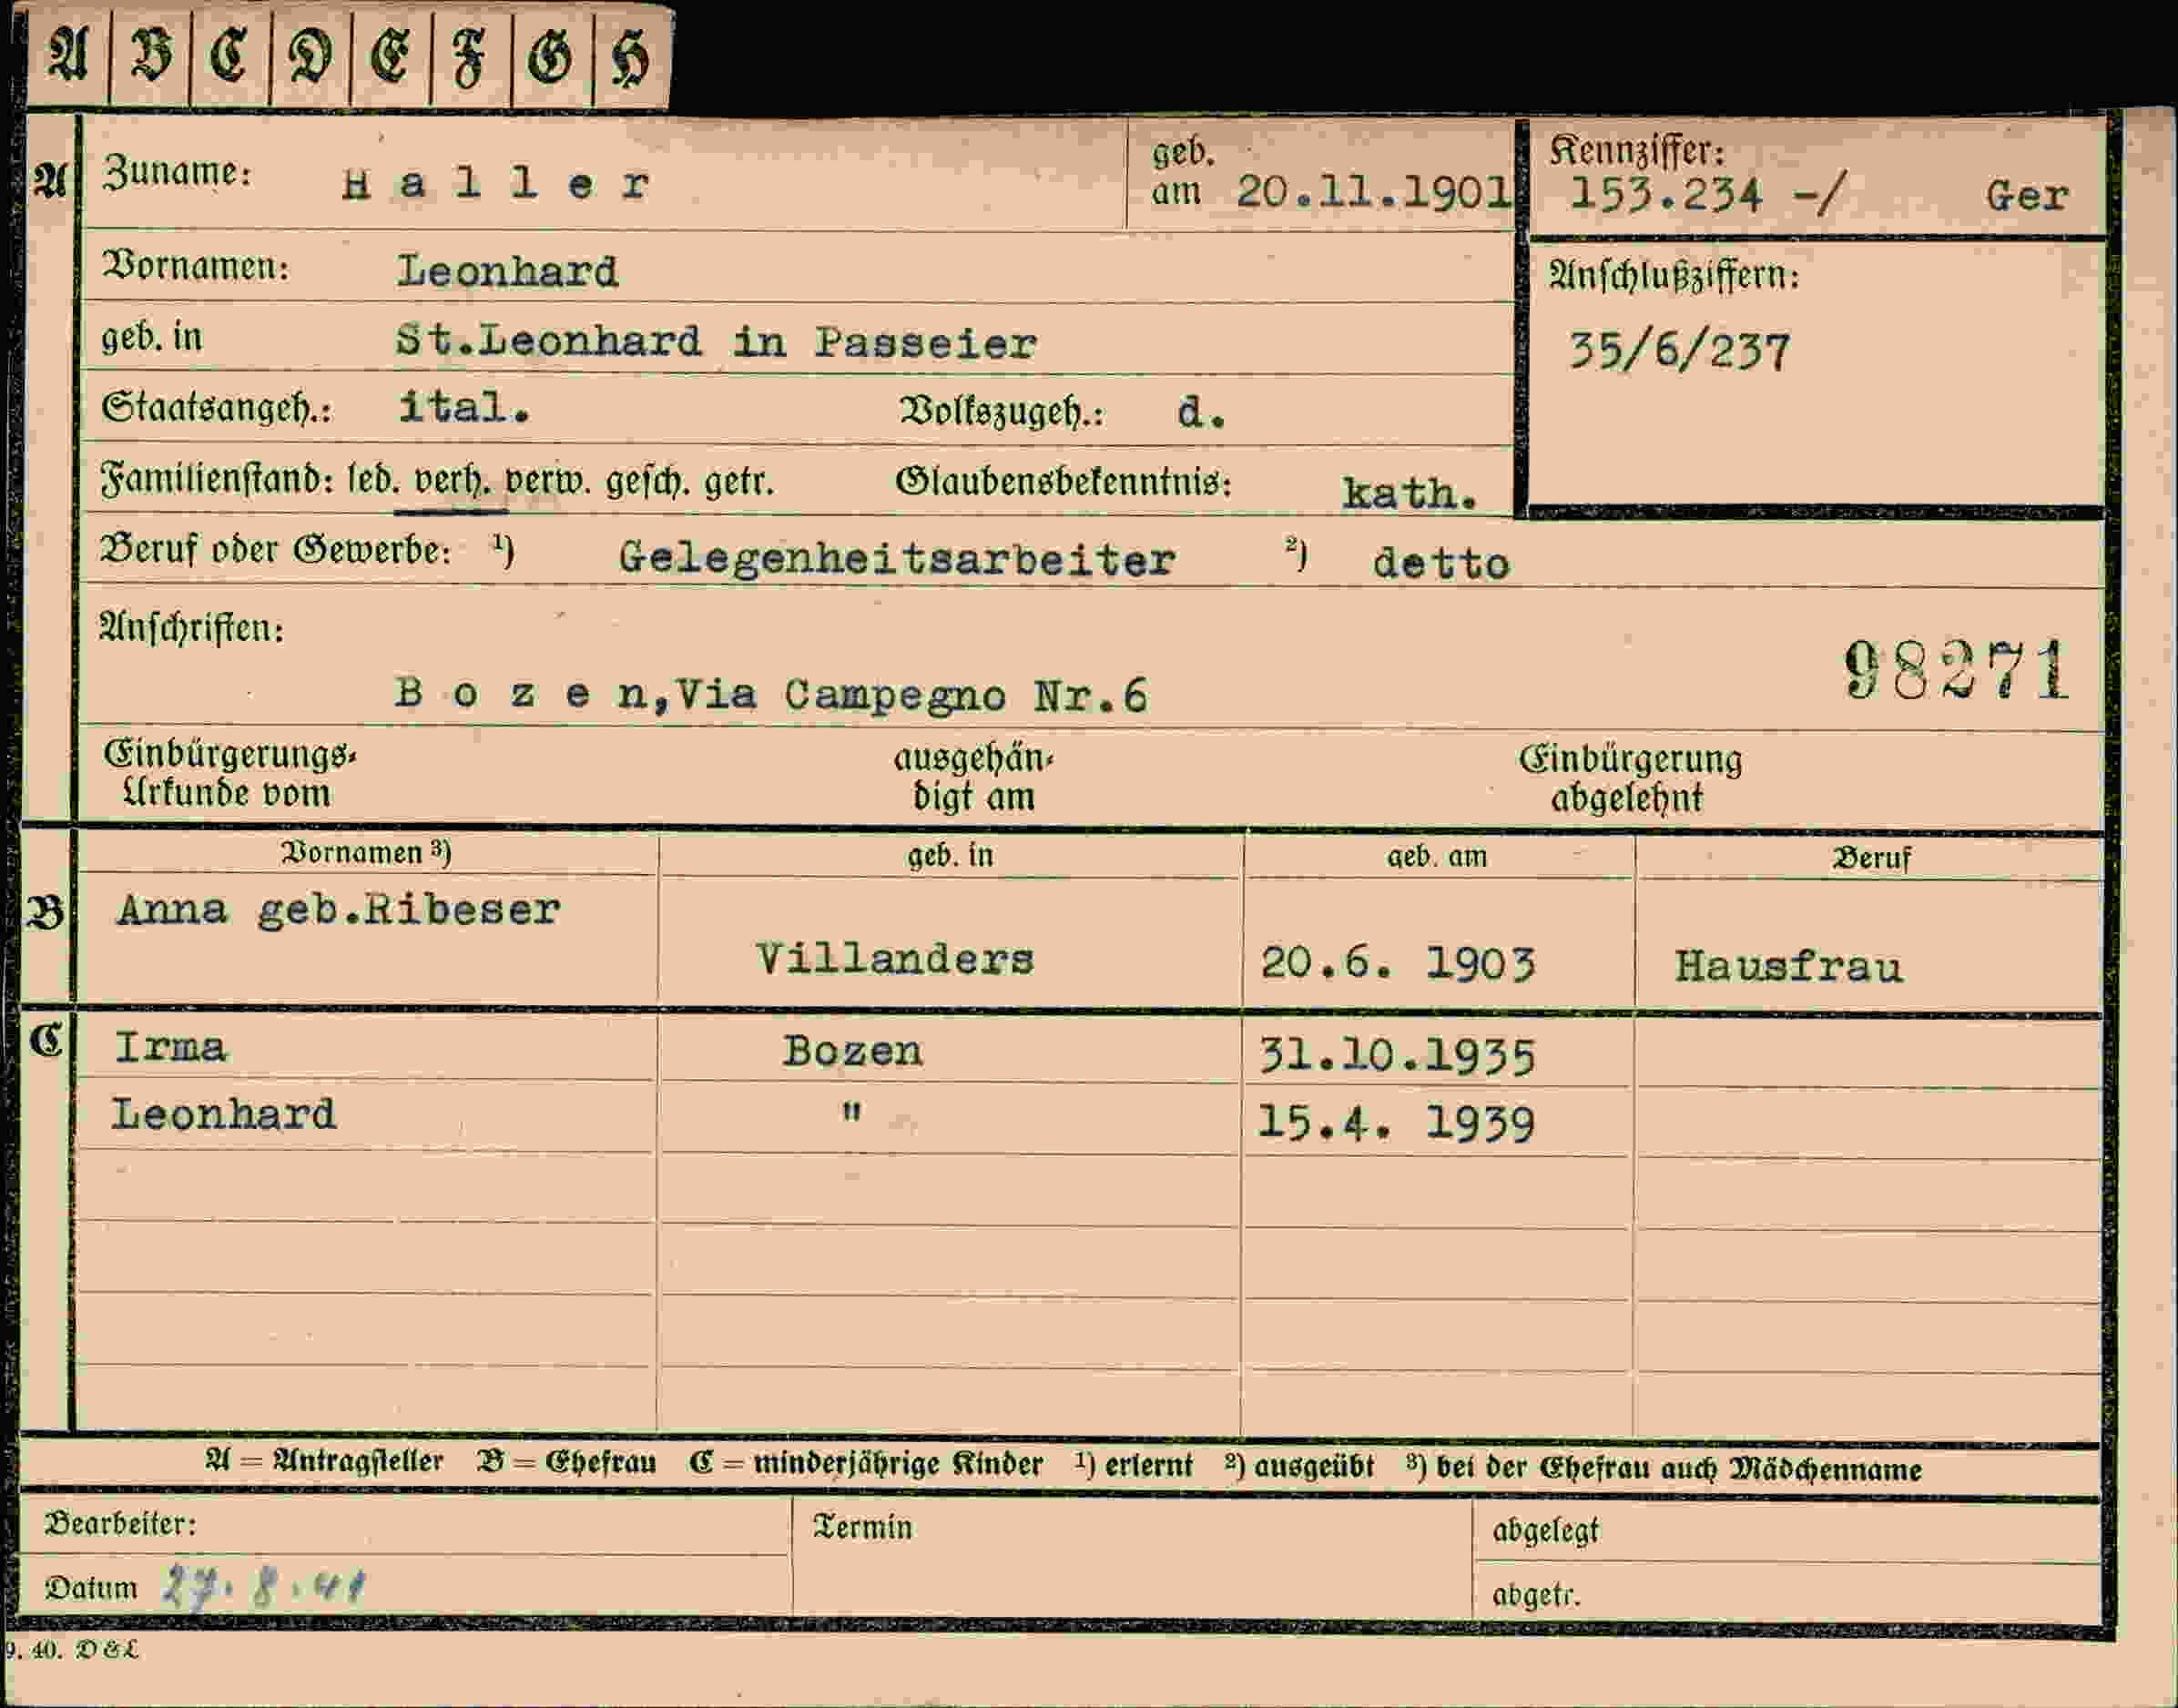 A B C D E F G H
A Zuname: Haller geb. am 20.11.1901 Kennziffer: 153.234 -/ Ger
Vornamen: Leonhard Anschlußziffern:
geb. in St.Leonhard in Passeier 35/6/237
Staatsangeh.: ital. Volkszugeh.: d.
Familienstand: led. verh. verw. gesch. getr. Glaubensbekenntnis: kath.
Beruf oder Gewerbe: ¹) Gelegenheitsarbeiter ²) detto
Anschriften:
98271
B o z e n, Via Campegno Nr.6
Einbürgerungs- ausgehän- Einbürgerung
Urkunde vom digt am abgelehnt
Vornamen ³) geb. in geb. am Beruf
B Anna geb.Ribeser
Villanders 20.6. 1903 Hausfrau
C Irma Bozen 31.10.1935
Leonhard " 15.4. 1939
A = Antragsteller B = Ehefrau C = minderjährige Kinder ¹) erlernt ²) ausgeübt ³) bei der Ehefrau auch Mädchenname
Bearbeiter: Termin abgelegt
Datum 27.8.41 abgetr.
9. 40. D & L